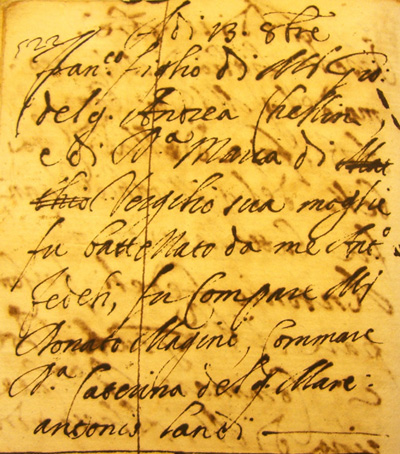 di 13. 8bre
522 Fran.co figlio di M. Gio.
del q. Andrea Chellin
e di M.a Maria di
Vergilio sua moglie
fu battezzato da me Ant.o
Fedeli, fu Compare M.
Donato Magini, Commare
M.a Caterina del q. Marc:
antonio Landi